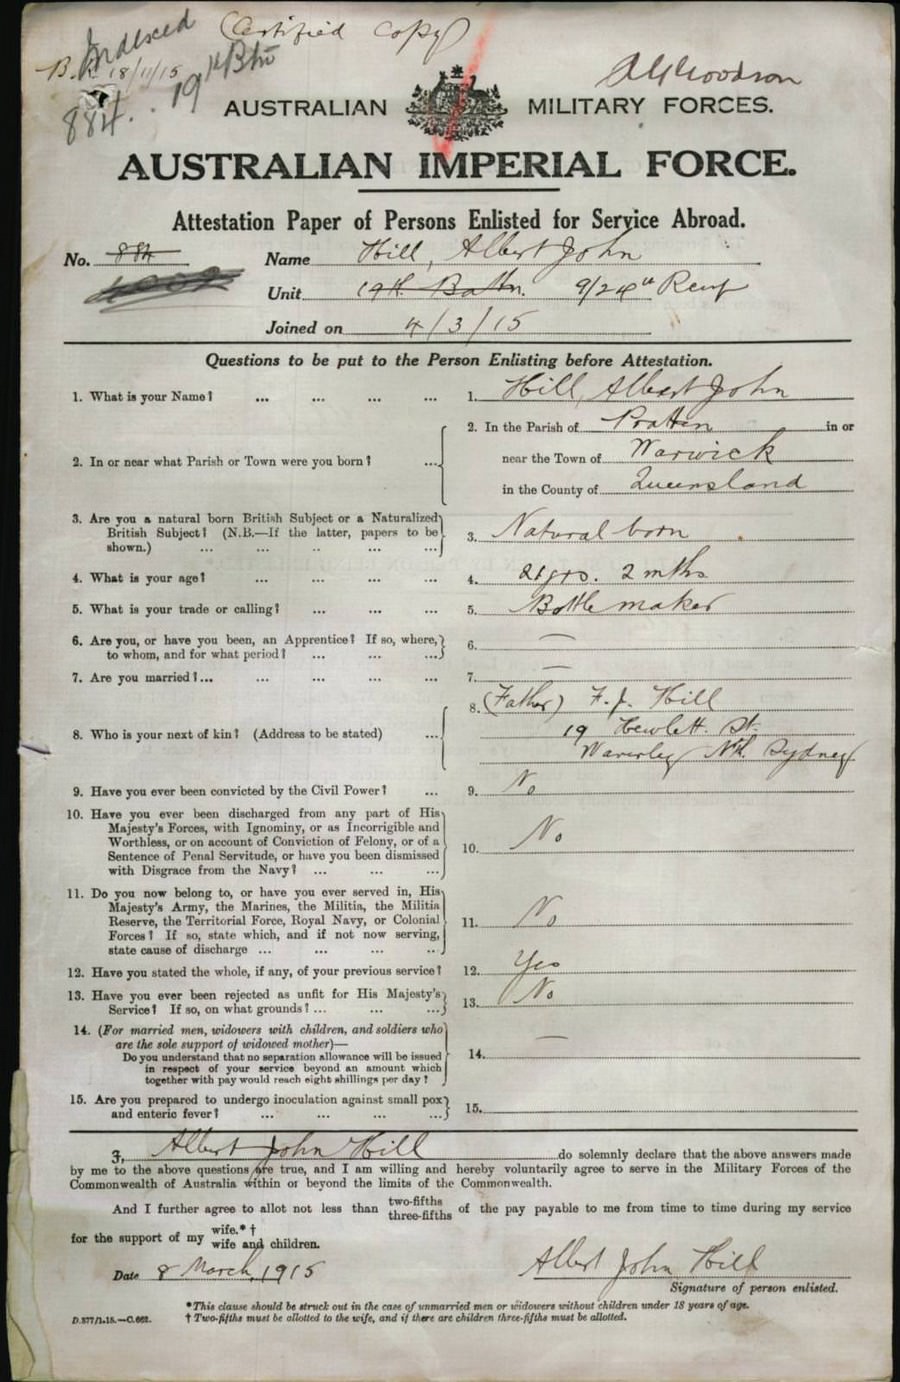 Certified Copy
Indexed
B.R. 18/11/15
884. 19th Btn
AUSTRALIAN MILITARY FORCES.
AUSTRALIAN IMPERIAL FORCE.
Attestation Paper of Persons Enlisted for Service Abroad.
No. 884 Name Hill, Albert John
Unit 19th Battn. 9/2 Reinf
Joined on 4/3/15
Questions to be put to the Person Enlisting before Attestation.
1. What is your Name? ... ... ... ... 1. Hill, Albert John
2. In or near what Parish or Town were you born? ... 2. In the Parish of Pratten in or
near the Town of Warwick
in the County of Queensland
3. Are you a natural born British Subject or a Naturalized
British Subject? (N.B.—If the latter, papers to be
shown.) ... ... .. ... ... 3. Natural born
4. What is your age? ... ... ... ... 4. 21 yrs. 2 mths
5. What is your trade or calling? ... ... ... 5. Bottle maker
6. Are you, or have you been, an Apprentice? If so, where,
to whom, and for what period? ... ... ... 6. —
7. Are you married?... ... ... ... ... 7. —
8. Who is your next of kin? (Address to be stated) ... 8. (Father) F. J. Hill
19 Hewlett St.
Waverley Nth. Sydney
9. Have you ever been convicted by the Civil Power? ... 9. No
10. Have you ever been discharged from any part of His
Majesty's Forces, with Ignominy, or as Incorrigible and
Worthless, or on account of Conviction of Felony, or of a
Sentence of Penal Servitude, or have you been dismissed
with Disgrace from the Navy? ... ... ... 10. No
11. Do you now belong to, or have you ever served in, His
Majesty's Army, the Marines, the Militia, the Militia
Reserve, the Territorial Force, Royal Navy, or Colonial
Forces? If so, state which, and if not now serving,
state cause of discharge ... ... ... .. 11. No
12. Have you stated the whole, if any, of your previous service? 12. Yes
13. Have you ever been rejected as unfit for His Majesty's
Service? If so, on what grounds? ... ... ... 13. No
14. (For married men, widowers with children, and soldiers who
are the sole support of widowed mother)—
Do you understand that no separation allowance will be issued
in respect of your service beyond an amount which
together with pay would reach eight shillings per day? 14. —
15. Are you prepared to undergo inoculation against small pox
and enteric fever? ... ... ... ... 15.
I, Albert John Hill do solemnly declare that the above answers made
by me to the above questions are true, and I am willing and hereby voluntarily agree to serve in the Military Forces of the
Commonwealth of Australia within or beyond the limits of the Commonwealth.
And I further agree to allot not less than two-fifths three-fifths of the pay payable to me from time to time during my service
for the support of my wife.* † wife and children.
Date 8 March 1915 Albert John Hill
Signature of person enlisted.
*This clause should be struck out in the case of unmarried men or widowers without children under 18 years of age.
† Two-fifths must be allotted to the wife, and if there are children three-fifths must be allotted.
D.577/1.15.—C.662.